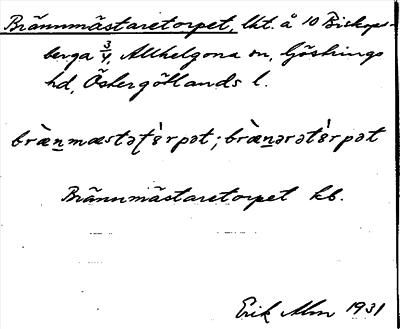 Brännmästaretorpet, lht. å 10 Biskops-
berga 3/4, Allhelgona sn, Göstrings
hd, Östergötlands l.
bræ̀n̲mæstət̀ɞrpət; bræ̀n̲ərət̀ɞrpət
Brännmästaretorpet kb.
Erik Alm 1931